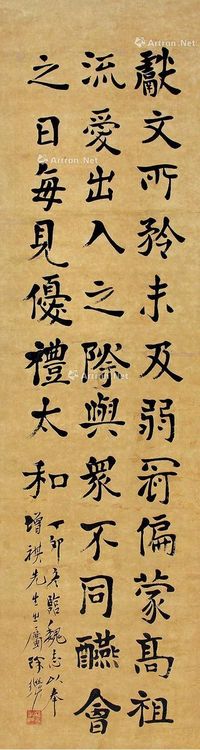 獻文所矜未及弱冠偏蒙髙祖
流愛出入之際與衆不同醼會
之日每見優禮太和
丁卯冬臨魏志以奉
增祺先生之屬 徐
Artron.Net
Artron.Net
Artron.Net
Artron.Net